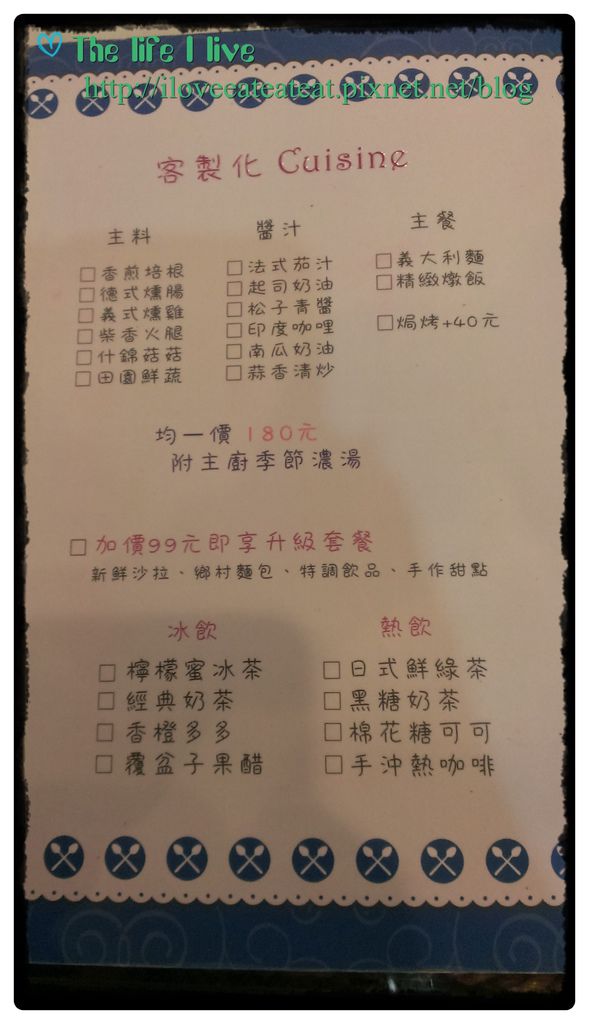 The life I live
http://iloveeateateat.pixnet.net/blog
客製化 Cuisine
主料
□香煎培根
□德式燻腸
□義式燻雞
□柴香火腿
□什錦菇菇
□田園鮮蔬
醬汁
□法式茄汁
□起司奶油
□松子青醬
□印度咖哩
□南瓜奶油
□蒜香清炒
主餐
□義大利麵
□精緻燉飯
□焗烤+40元
均一價 180元
附主廚季節濃湯
□ 加價99元即享升級套餐
新鮮沙拉、鄉村麵包、特調飲品、手作甜點
冰飲
□ 檸檬蜜冰茶
□ 經典奶茶
□ 香橙多多
□ 覆盆子果醋
熱飲
□ 日式鮮綠茶
□ 黑糖奶茶
□ 棉花糖可可
□ 手沖熱咖啡